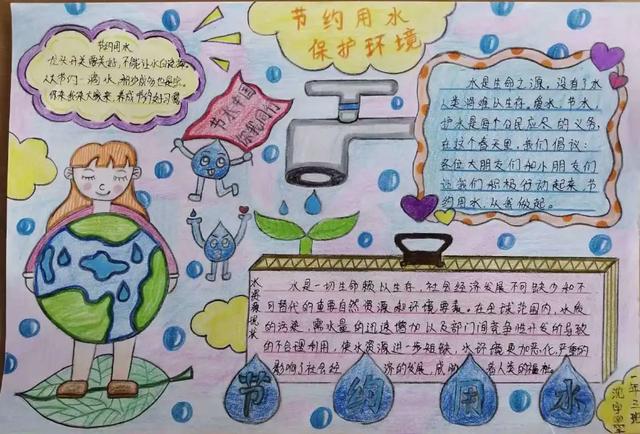 节约用水
保护环境
节约用水
水龙头开关要关好,不能让水白流淌,
节水中国
你我同行
水是生命之源,没有了水
人类将难以生存。爱水、节水、
护水是每个公民应尽的义务,
在这个春天里,我们倡议:
各位大朋友们和小朋友们
让我们积极行动起来节
约用水,从我做起。
水资源现状
水是一切生命赖以生存,社会经济发展不可缺少和不
可替代的重要自然资源和环境要素。在全球范围内,水质
的污染,需水量的迅速增加以及部门间竞争性开发的导致
的不合理利用,使水资源进一步短缺,水环境更加恶化,严重的
影响了社会经济的发展,威胁着人类的福祉。
节约用水
一年三班